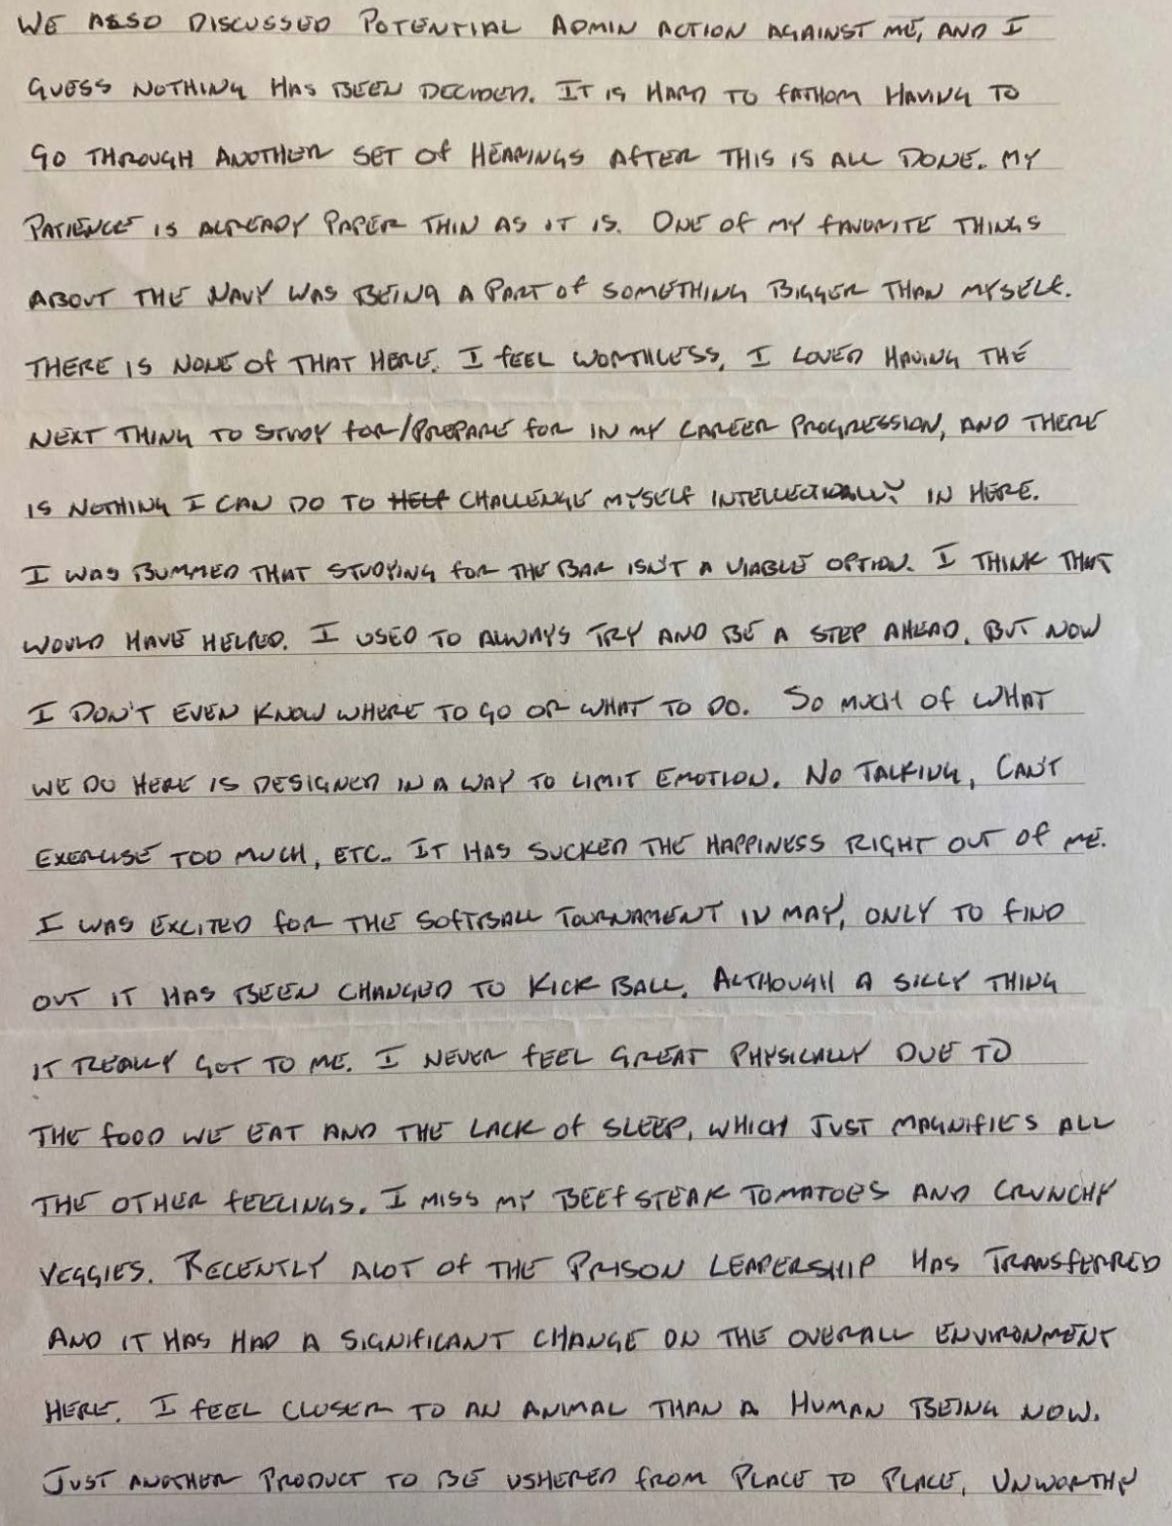 WE ALSO DISCUSSED POTENTIAL ADMIN ACTION AGAINST ME, AND I
GUESS NOTHING HAS BEEN DECIDED. IT IS HARD TO FATHOM HAVING TO
GO THROUGH ANOTHER SET OF HEARINGS AFTER THIS IS ALL DONE. MY
PATIENCE IS ALREADY PAPER THIN AS IT IS. ONE OF MY FAVORITE THINGS
ABOUT THE NAVY WAS BEING A PART OF SOMETHING BIGGER THAN MYSELF.
THERE IS NONE OF THAT HERE. I FEEL WORTHLESS, I LOVED HAVING THE
NEXT THING TO STUDY FOR/PREPARE FOR IN MY CAREER PROGRESSION, AND THERE
IS NOTHING I CAN DO TO HELP CHALLENGE MYSELF INTELLECTUALLY IN HERE.
I WAS BUMMED THAT STUDYING FOR THE BAR ISN'T A VIABLE OPTION. I THINK THAT
WOULD HAVE HELPED. I USED TO ALWAYS TRY AND BE A STEP AHEAD, BUT NOW
I DON'T EVEN KNOW WHERE TO GO OR WHAT TO DO. SO MUCH OF WHAT
WE DO HERE IS DESIGNED IN A WAY TO LIMIT EMOTION. NO TALKING, CAN'T
EXERCISE TOO MUCH, ETC.. IT HAS SUCKED THE HAPPINESS RIGHT OUT OF ME.
I WAS EXCITED FOR THE SOFTBALL TOURNAMENT IN MAY, ONLY TO FIND
OUT IT HAS BEEN CHANGED TO KICK BALL. ALTHOUGH A SILLY THING
IT REALLY GOT TO ME. I NEVER FEEL GREAT PHYSICALLY DUE TO
THE FOOD WE EAT AND THE LACK OF SLEEP, WHICH JUST MAGNIFIES ALL
THE OTHER FEELINGS. I MISS MY BEEFSTEAK TOMATOES AND CRUNCHY
VEGGIES. RECENTLY ALOT OF THE PRISON LEADERSHIP HAS TRANSFERRED
AND IT HAS HAD A SIGNIFICANT CHANGE ON THE OVERALL ENVIRONMENT
HERE. I FEEL CLOSER TO AN ANIMAL THAN A HUMAN BEING NOW.
JUST ANOTHER PRODUCT TO BE USHERED FROM PLACE TO PLACE, UNWORTHY